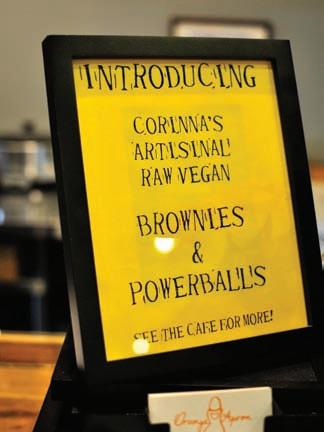 INTRODUCING
CORINNA'S
ARTISINAL
RAW VEGAN
BROWNIES
&
POWERBALLS
SEE THE CAFE FOR MORE!
Orange Apron